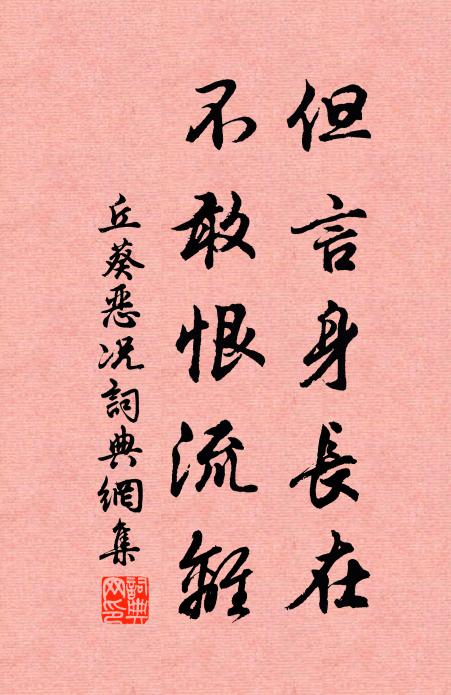 但言身長在
不敢恨流離
丘葵惡况詞典網集
詞典網印